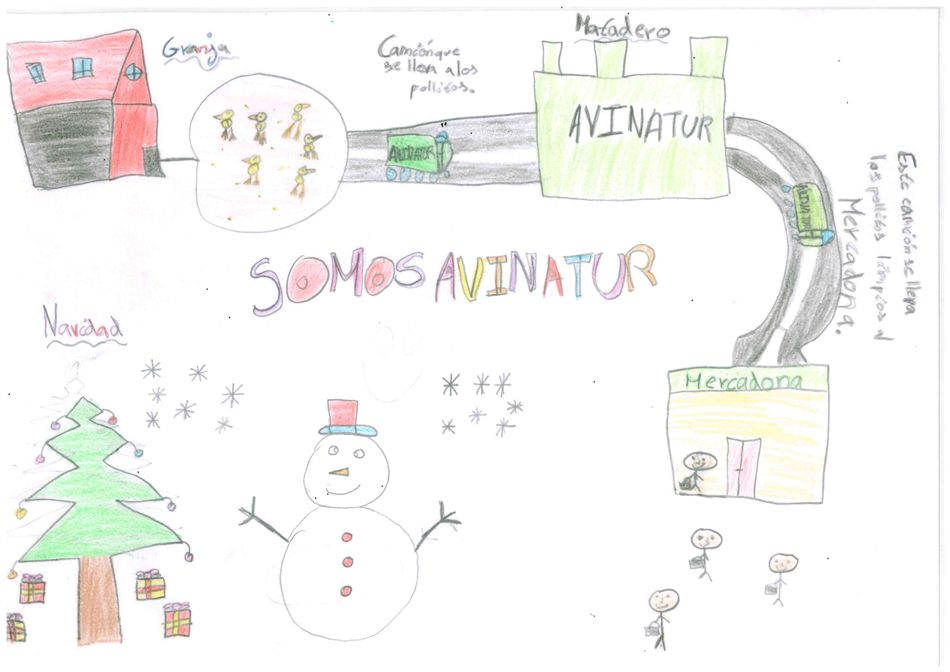 Granja
Camión que
se lleva a los
pollitos.
Matadero
AVINATUR
AVINATUR
AVINATUR
Este camión se lleva
los pollitos limpios al
Mercadona.
SOMOS AVINATUR
Navidad
Mercadona